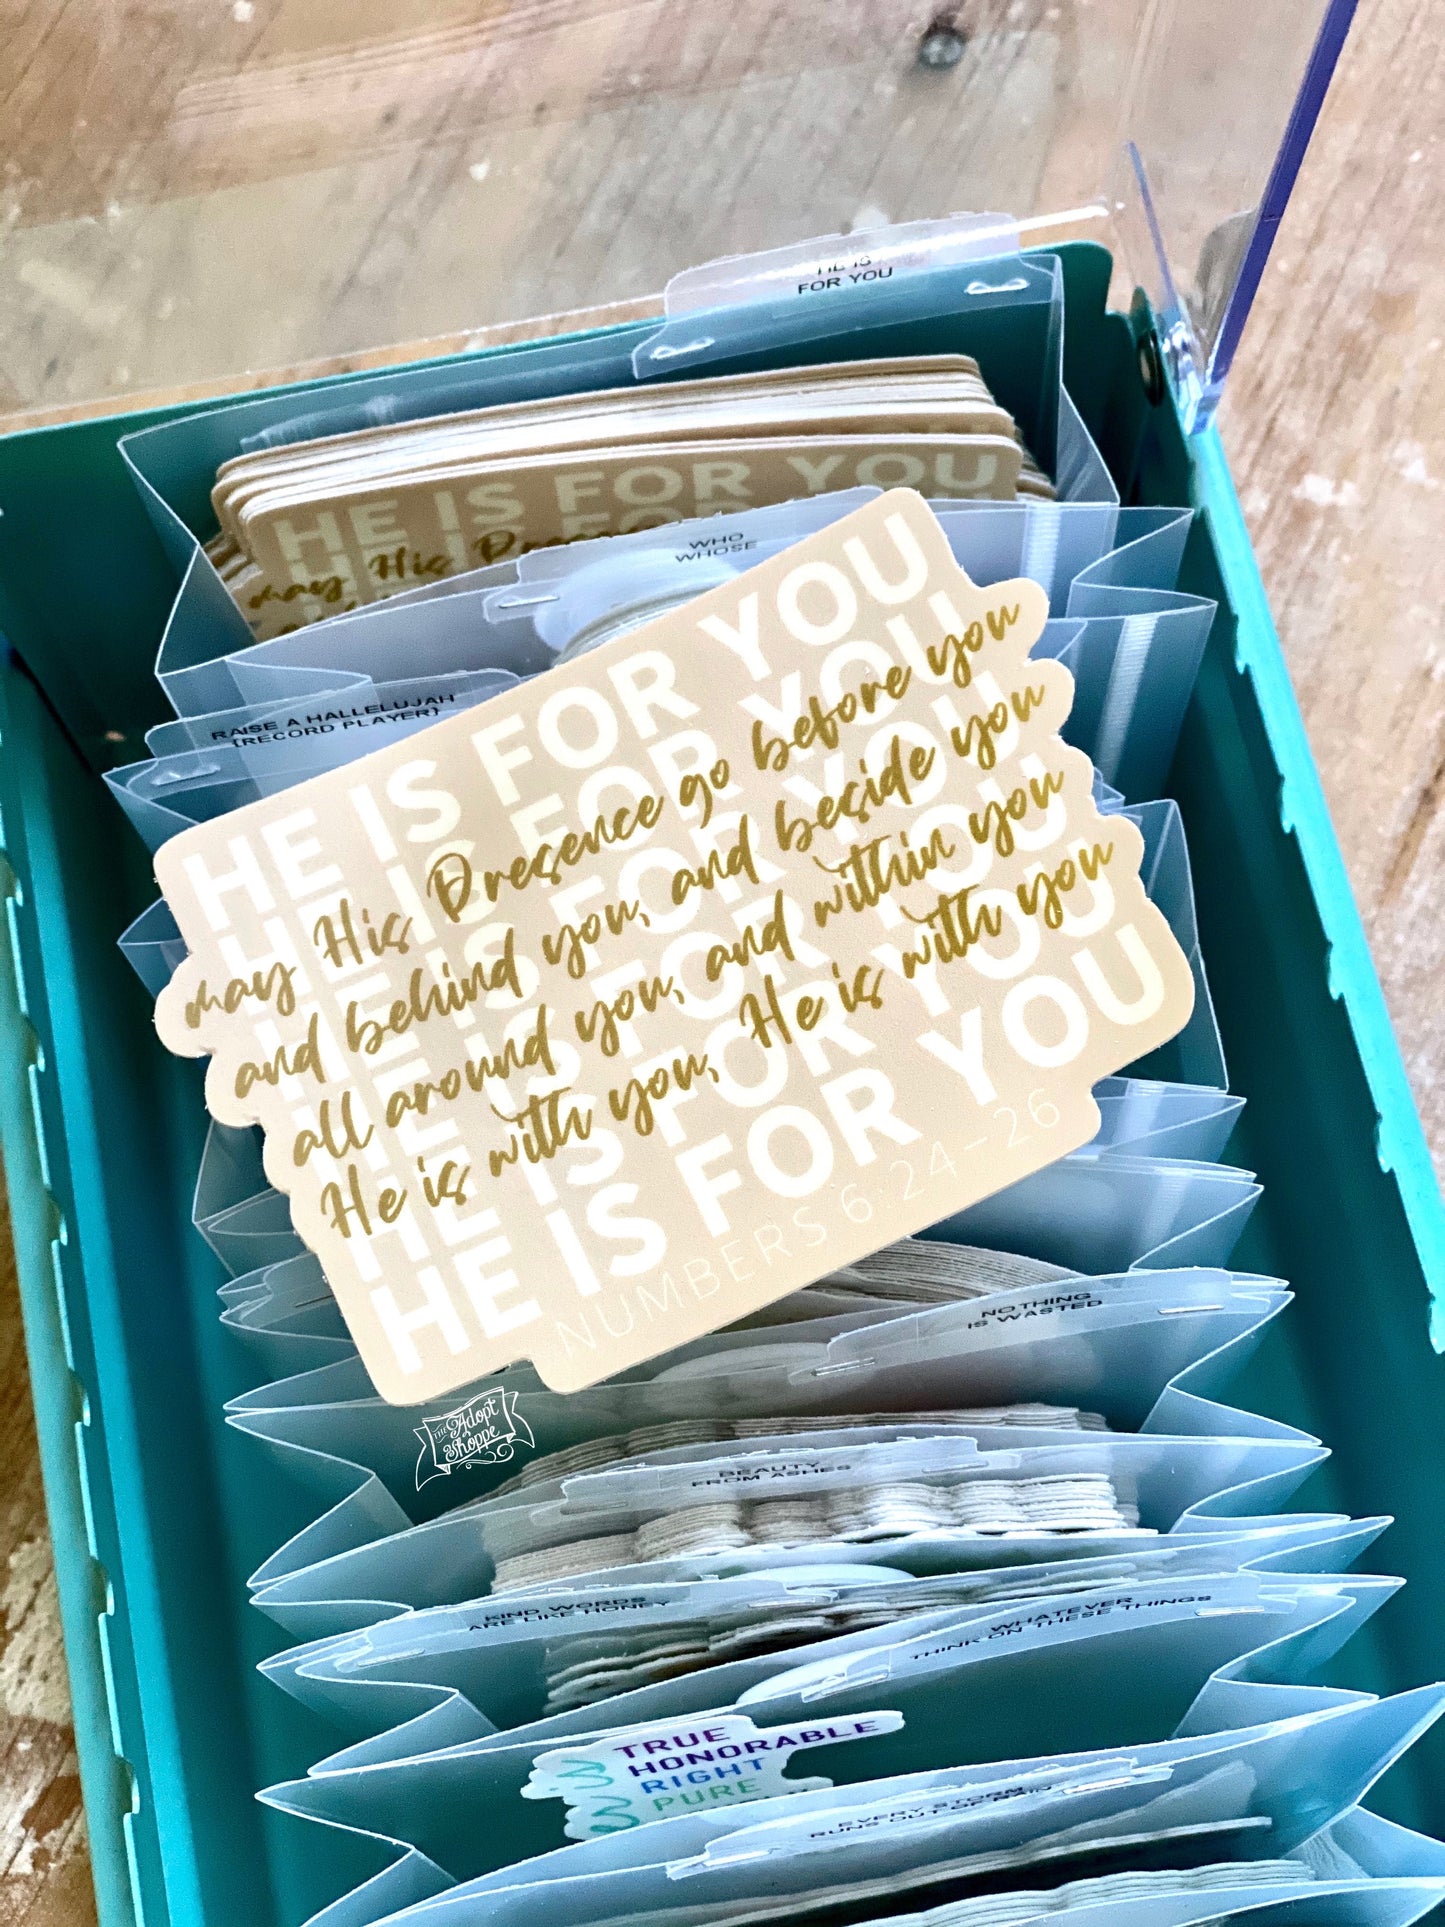 HE IS
FOR YOU
HE IS FOR YOU
may His Presence
WHO
WHOSE
RAISE A HALLELUJAH
{RECORD PLAYER}
HE IS FOR YOU
HE IS FOR YOU
may His Presence go before you
HE IS FOR YOU
and behind you, and beside you
HE IS FOR YOU
all around you, and within you
HE IS FOR YOU
He is with you, He is with you
HE IS FOR YOU
NUMBERS 6:24-26
THE Adopt
Shoppe
NOTHING
IS WASTED
BEAUTY
FROM ASHES
KIND WORDS
ARE LIKE HONEY
WHATEVER
THINK ON THESE THINGS
TRUE
HONORABLE
RIGHT
PURE
EVERY STORM
RUNS OUT OF RAIN